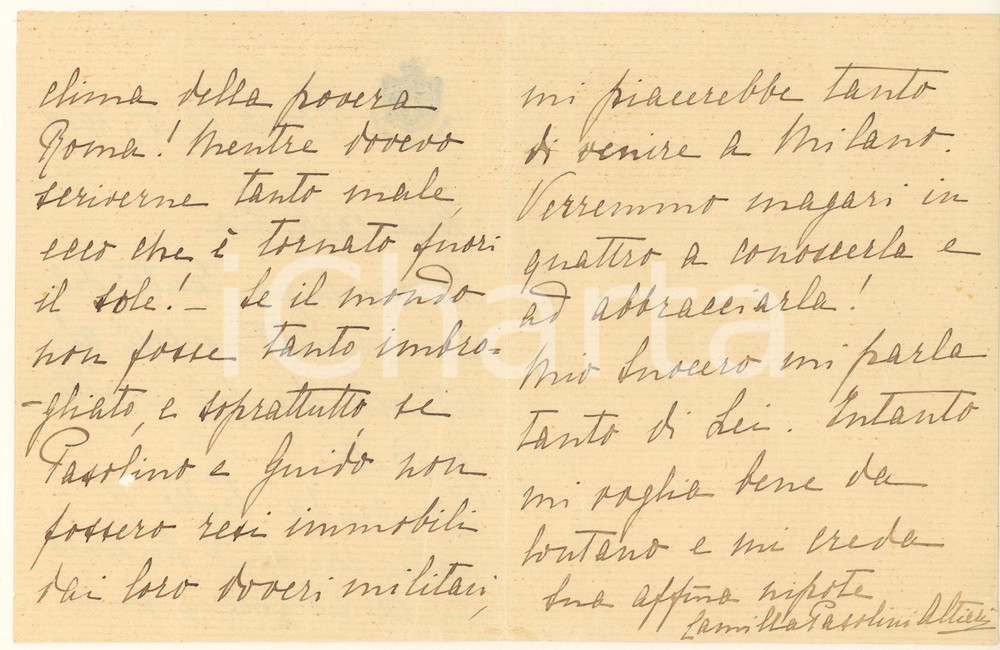 clima della povera
Roma! Mentre dovevo
scriverne tanto male,
ecco che è tornato fuori
il sole! – Se il mondo
non fosse tanto imbro=
-gliato, e soprattutto, se
Pasolino e Guido non
fossero resi immobili
dai loro doveri militari,
mi piacerebbe tanto
di venire a Milano.
Verremmo magari in
quattro a conoscerla e
ad abbracciarla!
Mio Suocero mi parla
tanto di Lei. Intanto
mi voglia bene da
lontano e mi creda
Sua affma nipote
Camilla Pasolini Altieri
iCharta